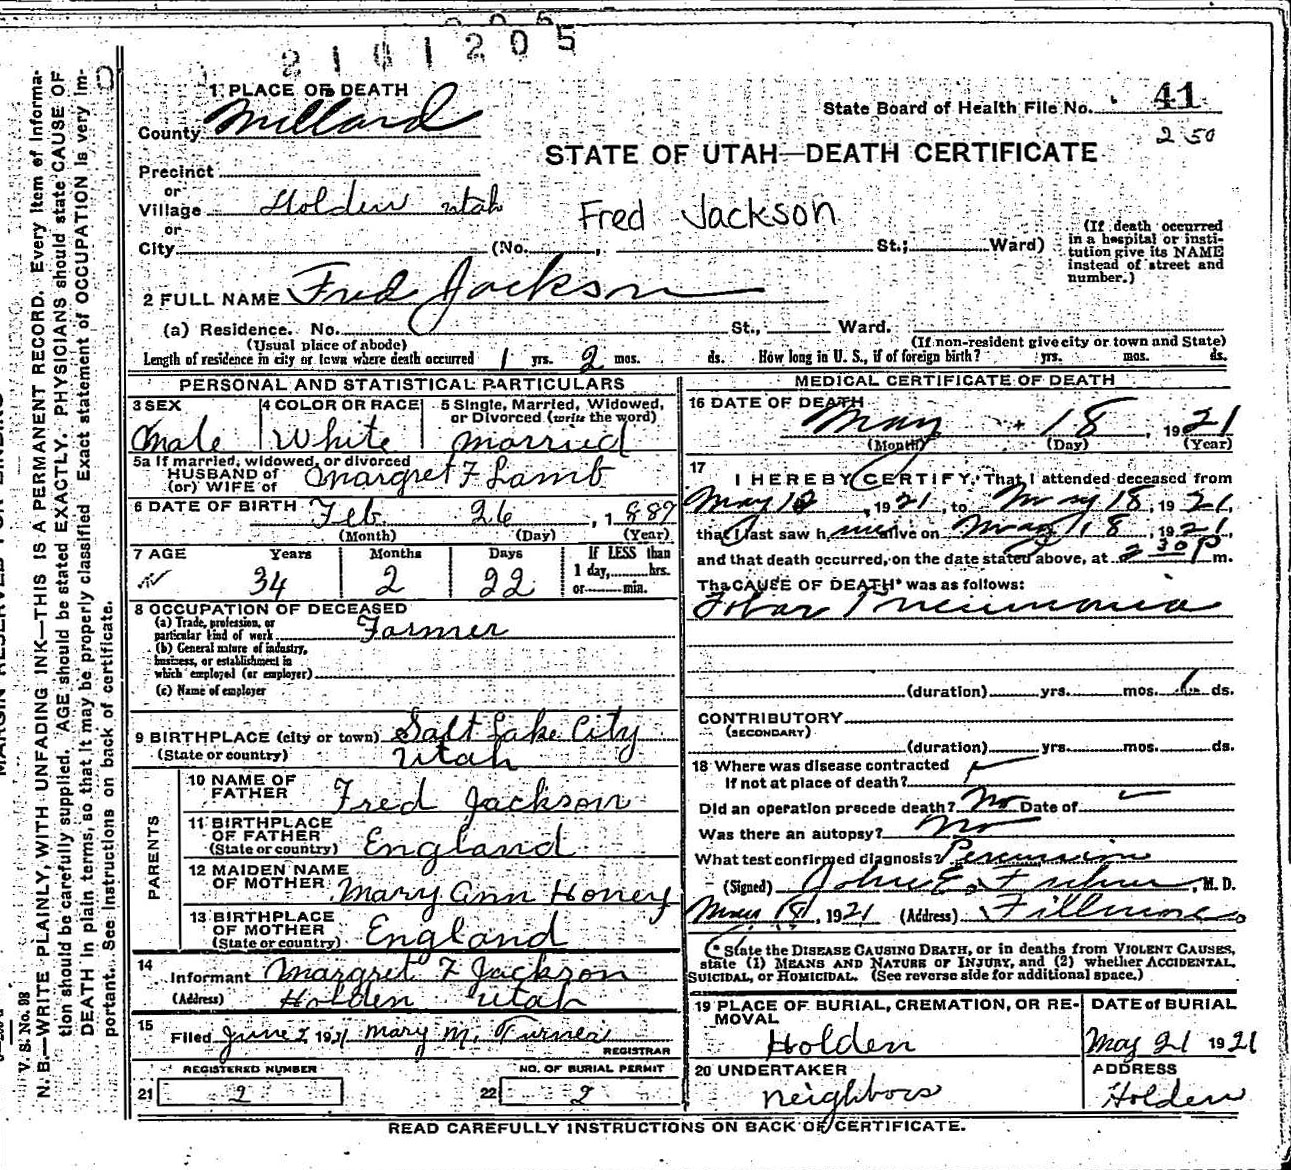 2101205
1 PLACE OF DEATH
County Millard
State Board of Health File No. 41
2 50
STATE OF UTAH—DEATH CERTIFICATE
Precinct
or
Village Holden Utah
or
Fred Jackson
City (No. , St.; Ward)
(If death occurred
in a hospital or insti-
tution give its NAME
instead of street and
number.)
2 FULL NAME Fred Jackson
(a) Residence. No. St., Ward.
(Usual place of abode) (If non-resident give city or town and State)
Length of residence in city or town where death occurred 1 yrs. 2 mos. ds. How long in U. S., if of foreign birth? yrs. mos. ds.
PERSONAL AND STATISTICAL PARTICULARS
3 SEX 4 COLOR OR RACE 5 Single, Married, Widowed,
or Divorced (write the word)
Male White married
5a If married, widowed, or divorced
HUSBAND of
(or) WIFE of Margret F Lamb
6 DATE OF BIRTH Feb 26, 1887
(Month) (Day) (Year)
7 AGE Years Months Days If LESS than
1 day, hrs.
or min.
34 2 22
8 OCCUPATION OF DECEASED
(a) Trade, profession, or
particular kind of work Farmer
(b) General nature of industry,
business, or establishment in
which employed (or employer)
(c) Name of employer
9 BIRTHPLACE (city or town) Salt Lake City
(State or country) Utah
PARENTS
10 NAME OF
FATHER Fred Jackson
11 BIRTHPLACE
OF FATHER
(State or country) England
12 MAIDEN NAME
OF MOTHER Mary Ann Honey
13 BIRTHPLACE
OF MOTHER
(State or country) England
14
Informant Margret F Jackson
(Address) Holden Utah
15
Filed June 2 1921 Mary M. Turner
REGISTRAR
REGISTERED NUMBER NO. OF BURIAL PERMIT
21 2 22 2
MEDICAL CERTIFICATE OF DEATH
16 DATE OF DEATH
May 18, 1921
(Month) (Day) (Year)
17
I HEREBY CERTIFY, That I attended deceased from
May 12, 1921, to May 18, 1921,
that I last saw him alive on May 18, 1921,
and that death occurred, on the date stated above, at 2 30 P m.
The CAUSE OF DEATH* was as follows:
Lobar Pneumonia
(duration) yrs. mos. 6 ds.
CONTRIBUTORY
(SECONDARY)
(duration) yrs. mos. ds.
18 Where was disease contracted
If not at place of death?
Did an operation precede death? No Date of
Was there an autopsy? No
What test confirmed diagnosis? Percussion
(Signed) John E. , M. D.
May 18, 1921 (Address) Fillmore
*State the DISEASE CAUSING DEATH, or in deaths from VIOLENT CAUSES,
state (1) MEANS AND NATURE OF INJURY, and (2) whether ACCIDENTAL,
SUICIDAL, or HOMICIDAL. (See reverse side for additional space.)
19 PLACE OF BURIAL, CREMATION, OR RE-
MOVAL
Holden
DATE of BURIAL
May 21 1921
20 UNDERTAKER
neighbors
ADDRESS
Holden
READ CAREFULLY INSTRUCTIONS ON BACK OF CERTIFICATE.
MARGIN RESERVED FOR BINDING
V. S. No. 98
N. B.—WRITE PLAINLY, WITH UNFADING INK—THIS IS A PERMANENT RECORD. Every item of informa-
tion should be carefully supplied. AGE should be stated EXACTLY. PHYSICIANS should state CAUSE OF
DEATH in plain terms, so that it may be properly classified. Exact statement of OCCUPATION is very im-
portant. See instructions on back of certificate.